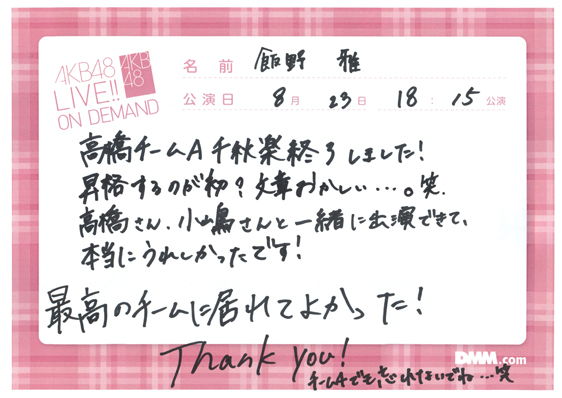 AKB48
LIVE!!
ON DEMAND
AKB
48
名前 飯野 雅
公演日 8月 23日 18:15公演
高橋チームA千秋楽終了しました!
昇格するのが初?文章おかしい…。笑.
高橋さん、小嶋さんと一緒に出演できて、
本当にうれしかったです!
最高のチームに居れてよかった!
Thank you!
チームAでも忘れないでね…笑
DMM.com